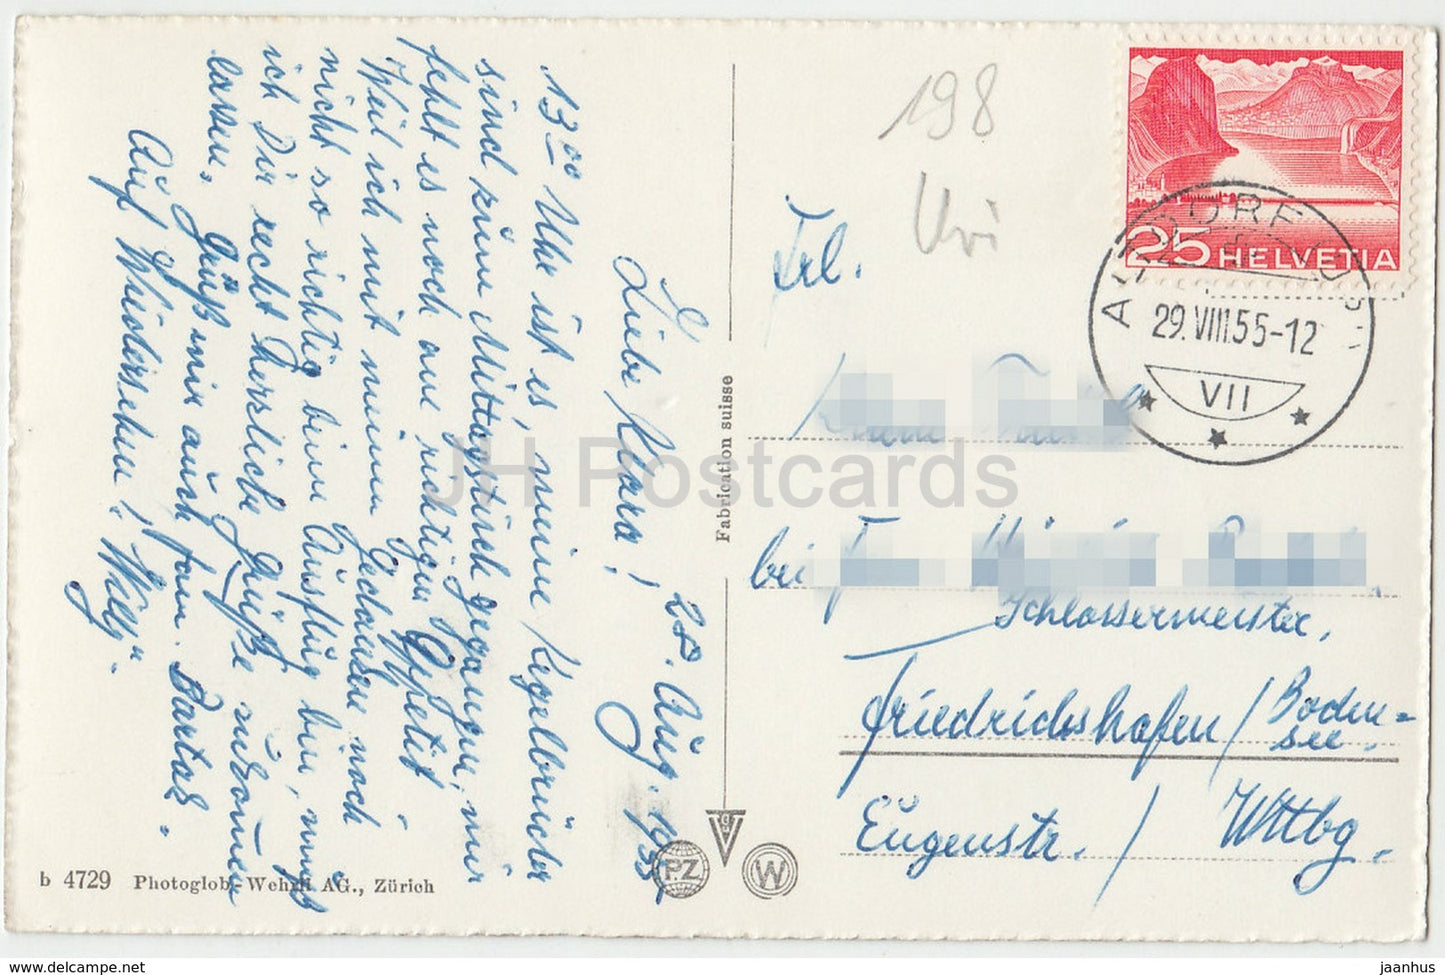 28. Aug. 1955
Liebe Klara!
13ºº Uhr ist es, meine Kegelbrüder
sind zum Mittagstisch gegangen, mir
fehlt es noch am richtigen Appetit
Weil ich mit meinen Gedanken noch
nicht so richtig beim Ausflug bin, muß
ich Dir recht herzliche Grüße zukommen
lassen. Grüß mir auch Fam.
Auf Wiedersehen! Willy.
b 4729 Photoglob-Wehrli AG., Zürich
Fabrication suisse
PZ
W
198
Uri
25 HELVETIA
ALTDORF
29.VIII.55-12
VII
Frl.
bei
Schlossermeister,
Friedrichshafen/Boden=
see.
Eugenstr. / Wttbg.
JH Postcards
www.delcampe.net
jaanhus